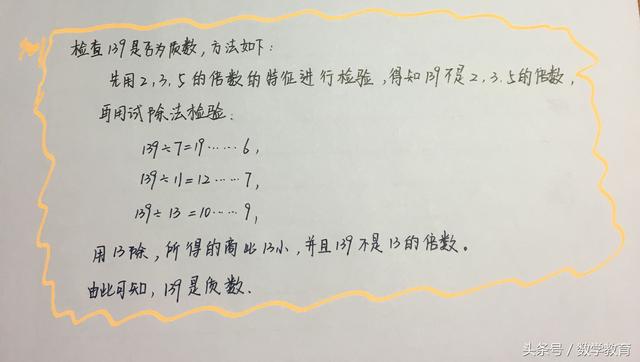 检查139是否为质数，方法如下：
先用2,3,5的倍数的特征进行检验，得知139不是2,3,5的倍数，
再用试除法检验：
139÷7=19……6，
139÷11=12……7，
139÷13=10……9，
用13除，所得的商比13小，并且139不是13的倍数。
由此可知，139是质数．
头条号／数学教育